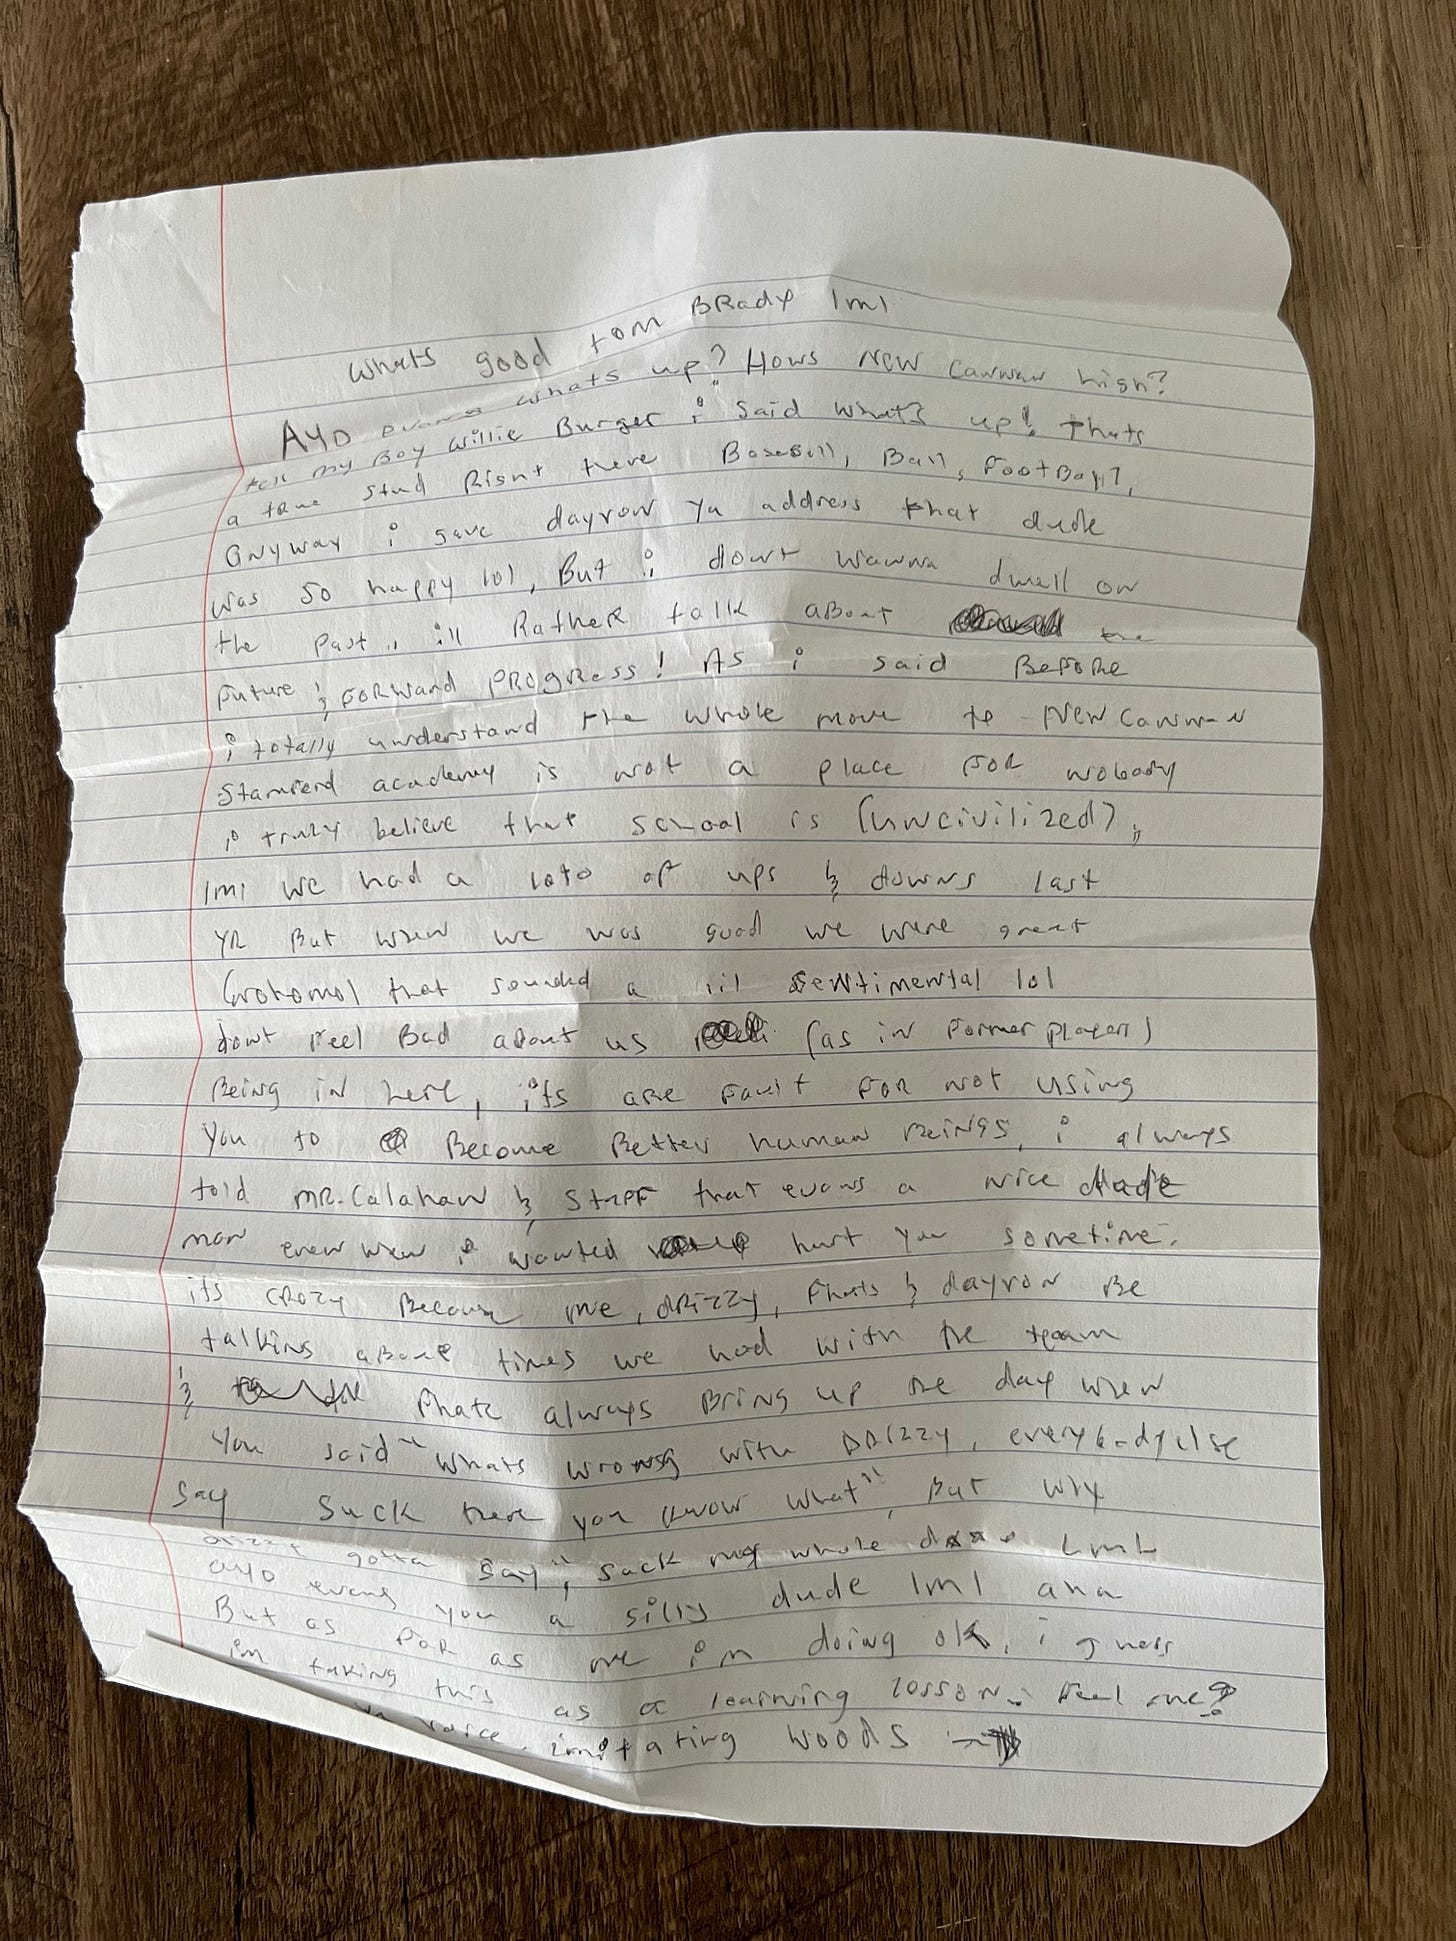 Whats good tom BRady lml
AYO evans whats up? Hows New Cannan high?
tell my Boy Willie Burger i said what's up! thats
a true stud Right there Baseball, Ball, FootBall,
anyway i gave dayron ya address that dude
was so happy lol, But i dont wanna dwell on
the past, ill RatheR talk about the
Future & FoRWard PROgRess! As i said BefoRe
i totally understand the whole move to New Cannan
Stamford academy is not a place FOR nobody
i truly believe that school is (uncivilized),
lml we had a loto of ups & downs last
YR But when we was good we were great
(nohomo) that sounded a lil sentimental lol
dont Feel Bad about us (as in Former players)
Being in here, its aRe Fault FoR not using
You to Become Better human Beings, i always
told MR. Calahan & Staff that evans a nice dude
man even when i wanted hurt you sometime.
its cRazy Because me, dRizzy, Phats & dayron Be
talking about times we had with the team
& Phatz always Bring up the day when
You said "Whats wrong with DRizzy, everybody else
say suck there you know what", But why
drizzy gotta say", suck my whole Lml
ayo evans you a silly dude lml aha
But as FaR as me i'm doing ok, i guess
im taking this as a learning lesson. Feel me?
voice, imitating Woods